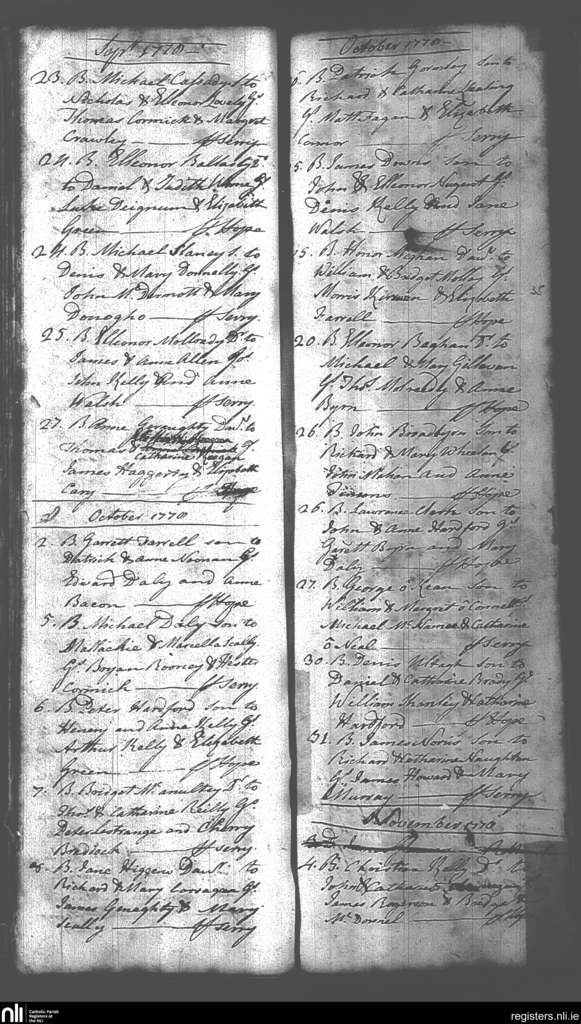 Sept. 1770
23. B. Michael Cassidy S. to
Nichola & Elleonor Lovely Gs
Thomas Cormick & Margret
Crawley ff Serry
24. B. Elleonor D.
to Daniel & Judith Gs
Luke Deignum & Elizabeth
Green ff Hope
24. B. Michael Slaney S. to
Denis & Mary Donnelly Gs
John McDermott & Mary
Donogho ff Serry
25. B. Elleonor D. to
James & Anne Allen Gs
John Kelly And Anne
Walsh ff Serry
27. B. Anne Geraughty Daur. to
Thomas & Catharine Keegan Gs
James Haggerty & Elizabeth
Cary ff Hope
October 1770
2. B. Garrett Farrell son to
Patrick & Anne Noonan Gs
Edward Daly and Anne
Bacon ff Hope
5. B. Michael Daly Son to
Mallachie & Mariella Scally
Gs Bryan Rooney &
Cormick ff Serry
6. B. Peter Handford Son to
Henery and Anne Kelly Gs
Arthur Kelly & Elizabeth
Green ff Hope
7. B. Bridget D. to
Thos. & Catharine Reilly Gs
Peter Lestrange and Cherry
ff Serry
B. Jane Higgens Daur. to
Richard & Mary Gs
James Geraghty & Mary
Scully ff Serry
October 1770
B. Patrick Gormley Son to
Richard & Catharine Keating
Gs Matt Fagan & Elizabeth
Connor ff Serry
B. James Downs Son to
John & Elleonor Nugent Gs
Denis Kelly And Jane
Walsh ff Serry
15. B. Honor Meghan Daur. to
William & Bridget Molloy Gs
Morris Kirwan & Elizabeth
Farrell ff Hope
20. B. Elleonor D. to
Michael & Mary Gs
Thos. & Anne
Byrn ff Hope
26. B. John Son to
Richard & Mary Wheelan Gs
John And Anne
ff Hope
26. B. Lawrance Clark Son to
John & Anne Handford Gs
Garett Byrn and Mary
Daly ff Hope
27. B. George o Kean Son to
William & Margret o Connell Gs
Michael McNamee & Catharine
o Neal ff Serry
30. B. Denis Son to
Daniel & Catharine Brady Gs
William Shanley & Catharine
Handford ff Hope
31. B. James Noris Son to
Richard & Catharine Naughton
Gs James Howard & Mary
Murray ff Serry
November 1770
4. B. Christian Kelly D. to
John & Catharine
James & Bridget
McDonnel
nli
Catholic Parish
Registers at
the NLI
registers.nli.ie